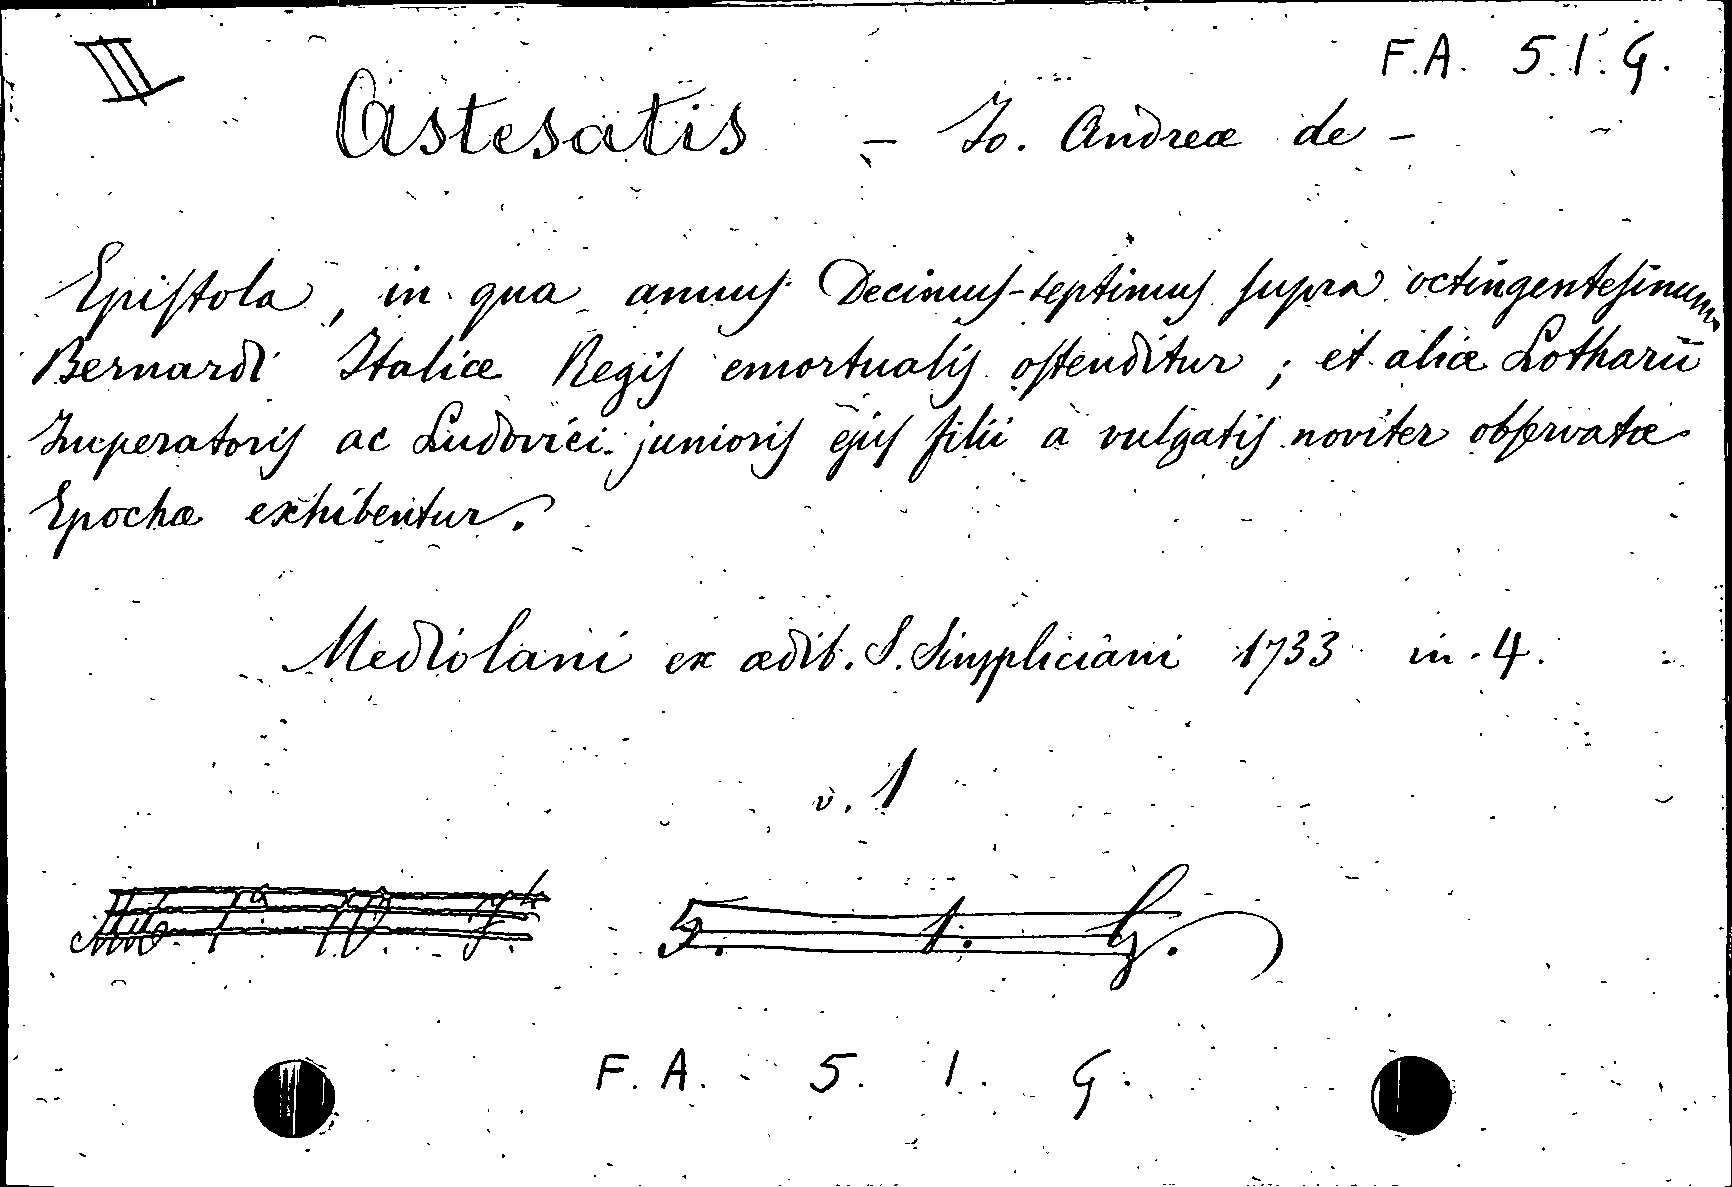 III
F.A. 5.1.G.
Astesatis - Jo. Andreæ de -
Epistola, in qua annus Decimus-septimus supra octingentesimum
Bernardi Italiæ Regis emortualis ostenditur; et aliæ Lotharii
Imperatoris ac Ludovici junioris ejus filii a vulgatis noviter observatæ
Epochæ exhibentur.
Mediolani ex ædib. S. Simpliciani 1733 in-4.
v. 1
5. 1. G.
F. A. 5. 1. G.